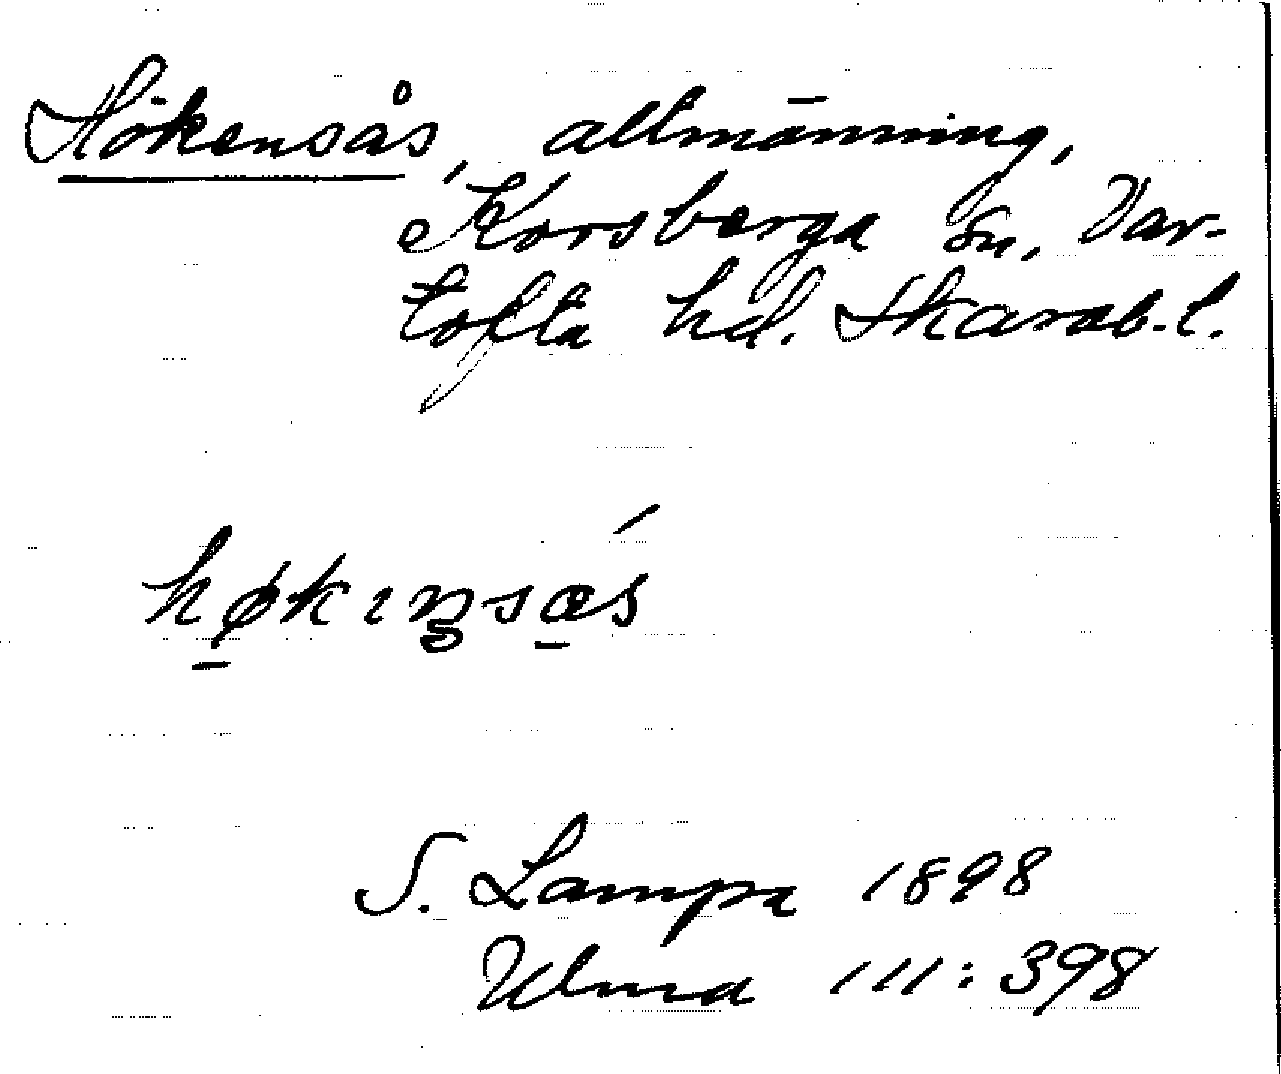 Hökensås, allmänning,
Korsberga sn, Var-
tofta hd. Skarab. l.
høkıŋsæs
S. Lampa 1898
Ulma 111:398